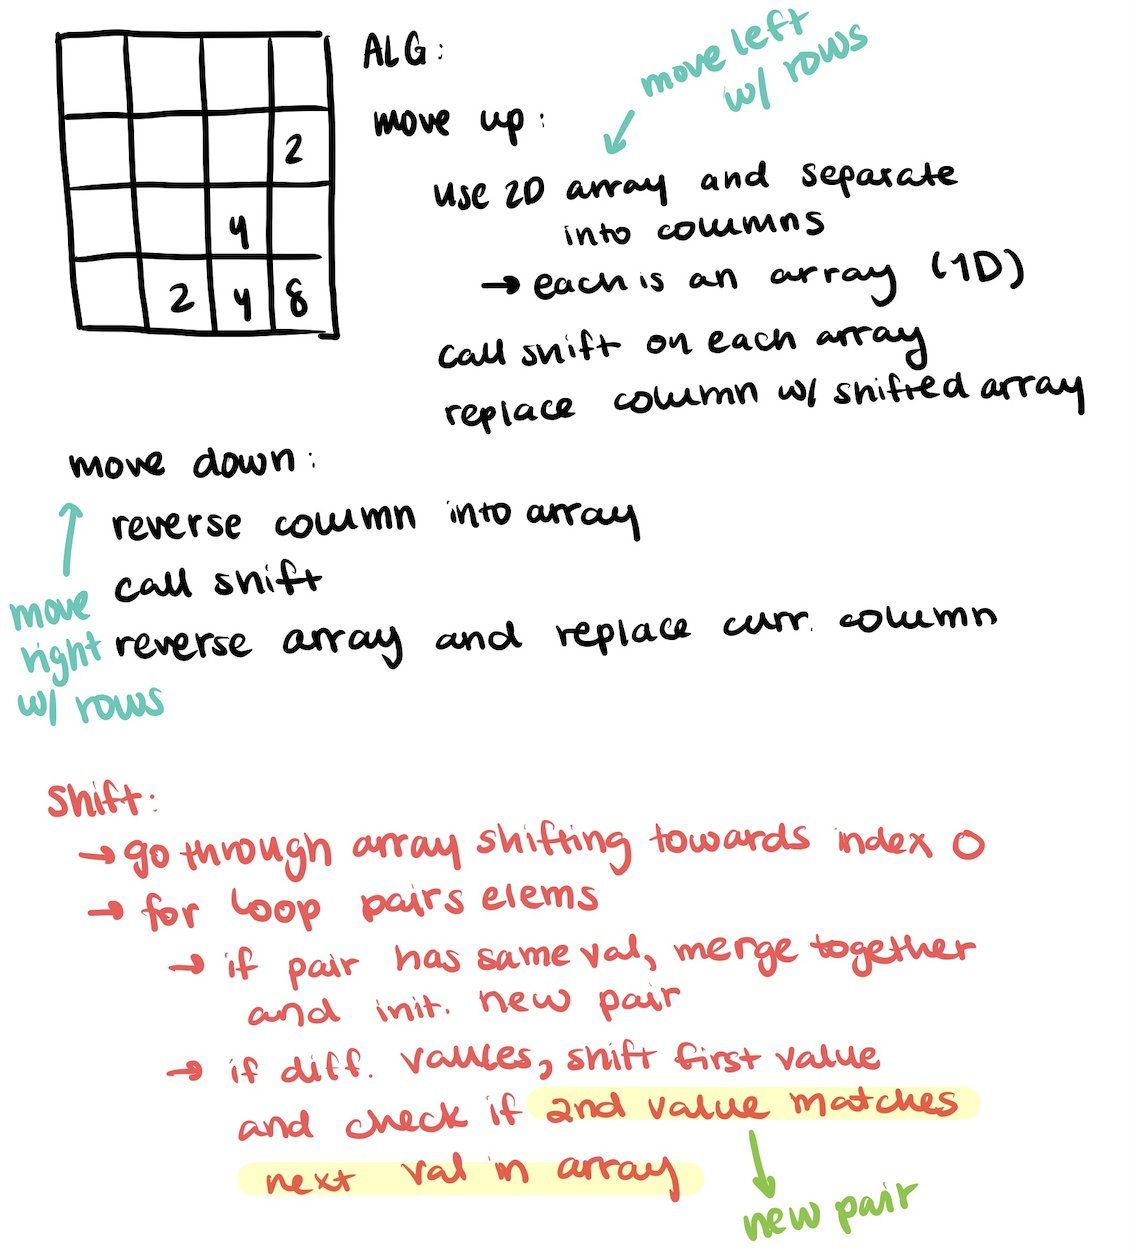 2
4
2 4 8
ALG:
move left
w/ rows
move up:
use 2D array and separate
into columns
→ each is an array (1D)
call shift on each array
replace column w/ shifted array
move down:
reverse column into array
call shift
reverse array and replace curr. column
move
right
w/ rows
Shift:
→ go through array shifting towards index 0
→ for loop pairs elems
→ if pair has same val, merge together
and init. new pair
→ if diff. values, shift first value
and check if 2nd value matches
next val in array
new pair